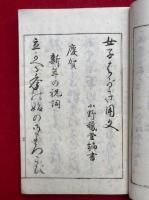 女子はがき用文
小野鵞堂編書
慶賀
新年の祝詞
立かへる春の始の